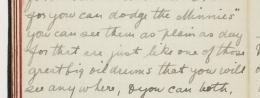 for you can dodge the "Minnies"
you can see them as plain as day
for that are just like one of those
great big oil drums that you will
see any where, & you can both,